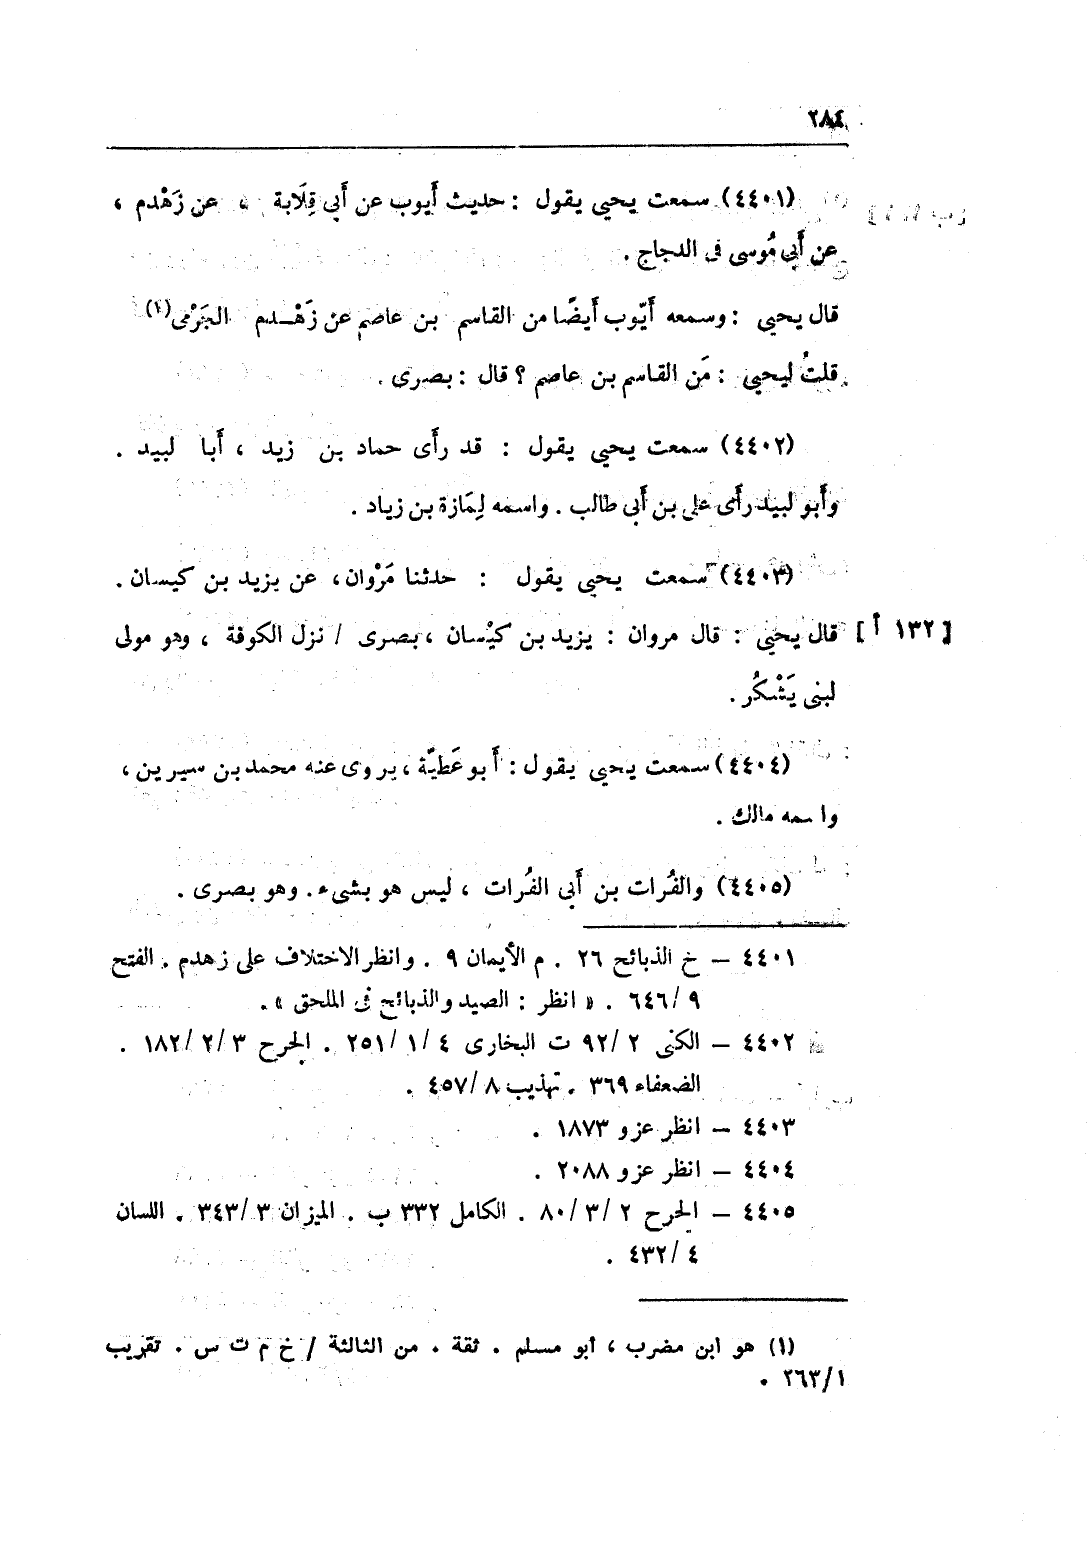 ٢٨٤
(٤٤٠١) سمعت يحيى يقول : حديث أَيوب عن أَبي قِلَابة ، عن زَهْدم ،
عن أَبي مُوسى فى الدجاج .
قال يحيى : وسمعه أَيّوب أَيضًا من القاسم بن عاصم عن زَهْـدم الجَرْمى(١)
قلتُ ليحيى : مَن القاسم بن عاصم ؟ قال : بصرى .
(٤٤٠٢) سمعت يحيى يقول : قد رأَى حماد بن زيد ، أَبا لبيد .
وأَبو لبيد رأَى على بن أَبى طالب . واسمه لِمَازة بن زياد .
(٤٤٠٣) سمعت يحيى يقول : حدثنا مَرْوان ، عن يزيد بن كيسان .
[ ١٣٢ أ ] قال يحيى : قال مروان : يزيد بن كيْسان ، بصرى / نزل الكوفة ، وهو مولى
لبنى يَشْكُر .
(٤٤٠٤) سمعت يحيى يقول : أَبو عَطيّة ، يروى عنه محمد بن سيرين ،
واسمه مالك .
(٤٤٠٥) والفُرات بن أَبى الفُرات ، ليس هو بشىء . وهو بصرى .
٤٤٠١ – خ الذبائح ٢٦ . م الأيمان ٩ . وانظر الاختلاف على زهدم . الفتح
٩ /٦٤٦ . « انظر : الصيد والذبائح فى الملحق » .
٤٤٠٢ – الكنى ٢ /٩٢ ت البخارى ٤ /١ /٢٥١ . الجرح ٣ /٢ /١٨٢ .
الضعفاء ٣٦٩ . تهذيب ٨ /٤٥٧ .
٤٤٠٣ – انظر عزو ١٨٧٣ .
٤٤٠٤ – انظر عزو ٢٠٨٨ .
٤٤٠٥ – الجرح ٢ /٣ /٨٠ . الكامل ٣٣٢ ب . الميزان ٣ /٣٤٣ . اللسان
٤ /٤٣٢ .
(١) هو ابن مضرب ، أبو مسلم . ثقة . من الثالثة / خ م ت س . تقريب
١/ ٢٦٣ .